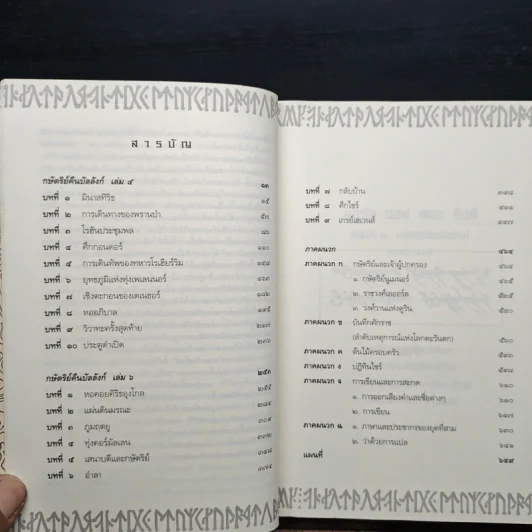 สารบัญ
กษัตริย์คืนบัลลังก์ เล่ม ๕ ๑๑
บทที่ ๑ มินาสทิริธ ๑๓
บทที่ ๒ การเดินทางของพรานป่า ๕๓
บทที่ ๓ โรฮันประชุมพล ๘๖
บทที่ ๔ ศึกกอนดอร์ ๑๑๐
บทที่ ๕ การเดินทัพของทหารโรเฮียร์ริม ๑๔๘
บทที่ ๖ ยุทธภูมิแห่งทุ่งเพเลนนอร์ ๑๖๓
บทที่ ๗ เชิงตะกอนของเดเนธอร์ ๑๘๒
บทที่ ๘ หออภิบาล ๑๙๕
บทที่ ๙ วิวาทะครั้งสุดท้าย ๒๑๗
บทที่ ๑๐ ประตูดำเปิด ๒๓๖
กษัตริย์คืนบัลลังก์ เล่ม ๖ ๒๕๓
บทที่ ๑ หอคอยคิริธอุงโกล ๒๕๕
บทที่ ๒ แผ่นดินมรณะ ๒๘๕
บทที่ ๓ ภูมฤตยู
บทที่ ๔ ทุ่งคอร์มัลเลน ๓๓๒
บทที่ ๕ เสนาบดีและกษัตริย์
บทที่ ๖ อำลา
บทที่ ๗ กลับบ้าน
บทที่ ๘ ศึกไชร์ ๔๑๑
บทที่ ๙ เกรย์เฮเวนส์
ภาคผนวก ๔๖๔
ภาคผนวก ก กษัตริย์และเจ้าผู้ปกครอง ๔๖๕
๑. กษัตริย์นูเมนอร์
๒. ราชวงศ์เออร์ล
๓. วงศ์วานแห่งดูริน
ภาคผนวก ข บันทึกศักราช
(ลำดับเหตุการณ์แห่งโลกตะวันตก) ๕๖๐
ภาคผนวก ค ต้นไม้ครอบครัว
ภาคผนวก ง ปฏิทินไชร์
ภาคผนวก จ การเขียนและการสะกด ๖๑๗
๑. การออกเสียงคำและชื่อต่างๆ ๖๑๗
๒. การเขียน
ภาคผนวก ฉ ๑. ภาษาและประชากรของยุคที่สาม
๒. ว่าด้วยการแปล
แผนที่ ๖๔๙